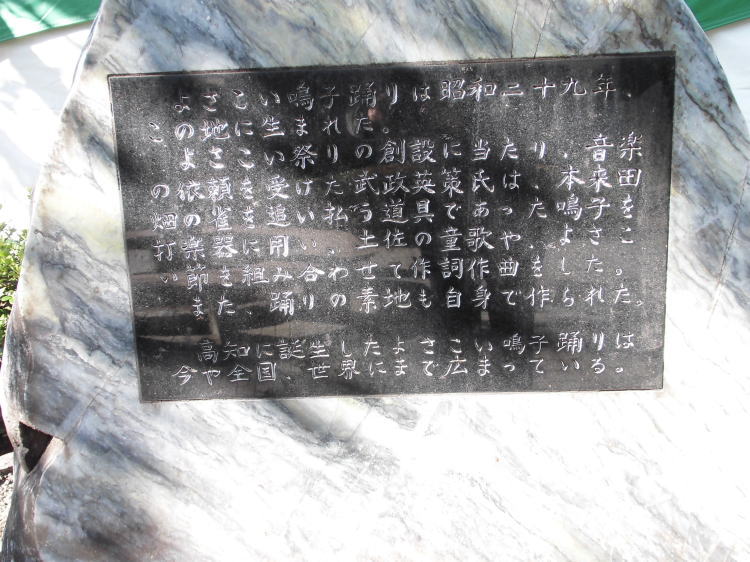 よさこい鳴子踊りは昭和二十九年、
この地に生まれた。
よさこい祭りの創設に当たり、音楽
の依頼を受けた武政英策氏は、本来田
畑の雀を追い払う道具であった鳴子を
打楽器に用い、土佐の童歌や、よさこ
い節をに組み合わせて作詞作曲をした。
また、踊りの素地も自身で作られた。
高知に誕生したよさこい鳴子踊りは
今や全国、世界にまで広まっている。